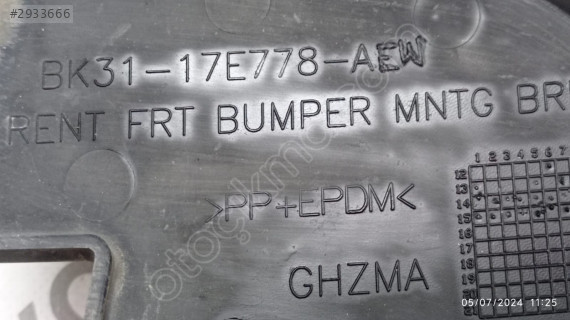 #2933666
BK31-17E778-AEW
RENT FRT BUMPER MNTG BR
>PP+EPDM<
GHZMA
1 2 3 4 5 6 7
12
13
14
15
16
17
18
19
20
21
05/07/2024 11:25